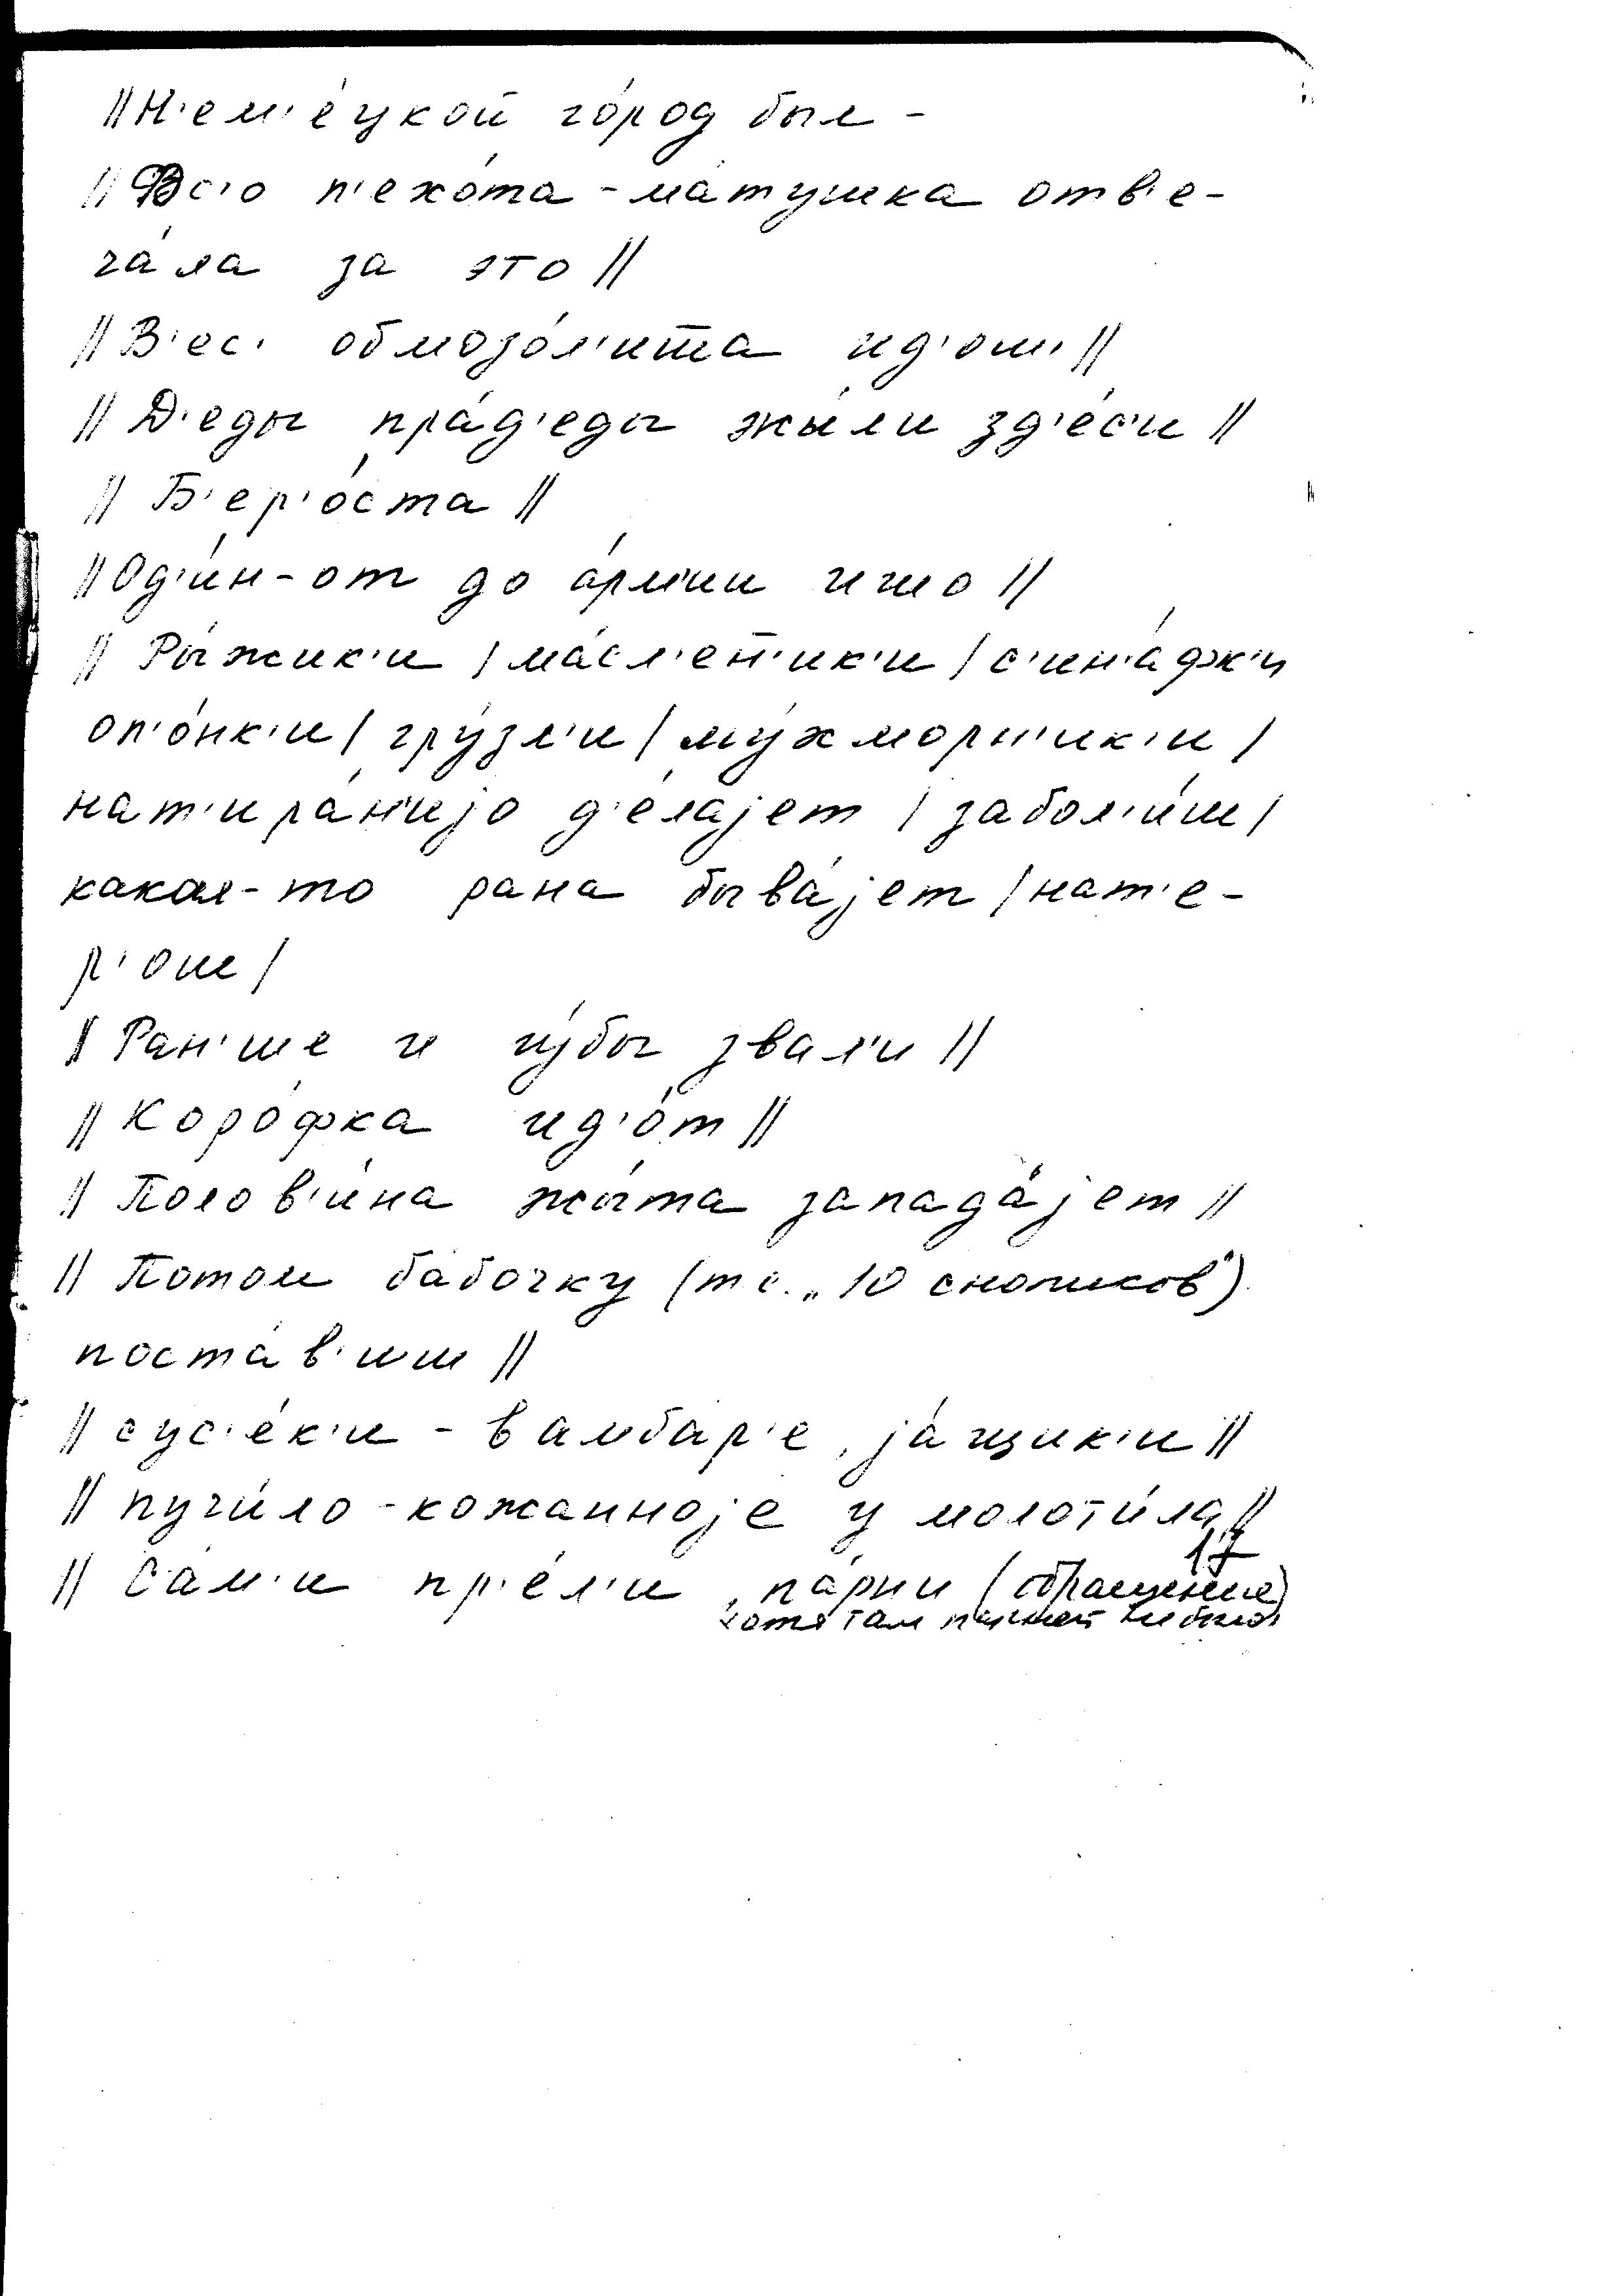 || Н'ем'е́цкой го́род был -
|| Вс'о п'ехо́та - ма́тушка отв'е-
ча́ла за это ||
|| В'ес' обмозо́л'ита ид'ош ||
|| Д'еды пра́д'еды жы́ли зд'е́с'и ||
|| Б'ер'о́ста ||
|| Од'и́н-от до а́рм'ии ишо ||
|| Ры́жик'и | ма́сл'ен'ик'и | с'ин'а́фк'и
оп'о́нк'и | гру́зл'и | му́хморн'ик'и |
нат'ира́н'иjо д'е́лаjет | забол'и́ш |
какая-то рана быва́jет | нат'е-
р'ош |
|| Ран'ше и гу́бы звал'и ||
|| Коро́фка ид'о́т ||
|| Полов'и́на жы́та запада́jет ||
|| Потом ба́бочку (т.е. „10 снопиков")
поста́в'иш ||
|| сус'е́к'и - в амбар'е, jа́щик'и ||
|| пучи́ло - кожанноjе у молоти́ла ||
17
|| Са́м'и пр'е́л'и, па́рни (обращение)
хотя там парней не было